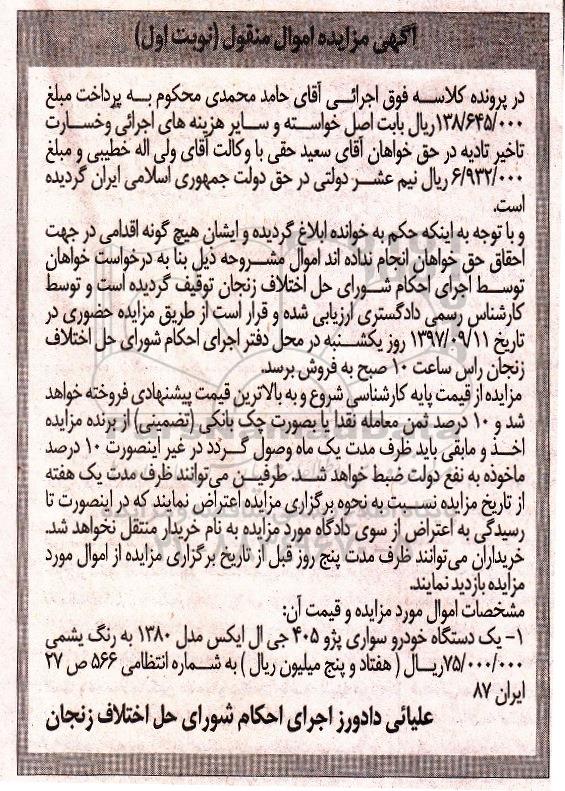 آگهی مزایده اموال منقول (نوبت اول)
در پرونده کلاسه فوق اجرائی آقای حامد محمدی محکوم به پرداخت مبلغ
۱۳۸/۶۴۵/۰۰۰ریال بابت اصل خواسته و سایر هزینه های اجرائی وخسارت
تاخیر تادیه در حق خواهان آقای سعید حقی با وکالت آقای ولی اله خطیبی و مبلغ
۶/۹۳۲/۰۰۰ ریال نیم عشر دولتی در حق دولت جمهوری اسلامی ایران گردیده
است.
و با توجه به اینکه حکم به خوانده ابلاغ گردیده و ایشان هیچ گونه اقدامی در جهت
احقاق حق خواهان انجام نداده اند اموال مشروحه ذیل بنا به درخواست خواهان
توسط اجرای احکام شورای حل اختلاف زنجان توقیف گردیده است و توسط
کارشناس رسمی دادگستری ارزیابی شده و قرار است از طریق مزایده حضوری در
تاریخ ۱۳۹۷/۰۹/۱۱ روز یکشنبه در محل دفتر اجرای احکام شورای حل اختلاف
زنجان راس ساعت ۱۰ صبح به فروش برسد.
مزایده از قیمت پایه کارشناسی شروع و به بالاترین قیمت پیشنهادی فروخته خواهد
شد و ۱۰ درصد ثمن معامله نقدا یا بصورت چک بانکی (تضمینی) از برنده مزایده
اخذ و مابقی باید ظرف مدت یک ماه وصول گردد در غیر اینصورت ۱۰ درصد
ماخوذه به نفع دولت ضبط خواهد شد. طرفین می‌توانند ظرف مدت یک هفته
از تاریخ مزایده نسبت به نحوه برگزاری مزایده اعتراض نمایند که در اینصورت تا
رسیدگی به اعتراض از سوی دادگاه مورد مزایده به نام خریدار منتقل نخواهد شد.
خریداران می‌توانند ظرف مدت پنج روز قبل از تاریخ برگزاری مزایده از اموال مورد
مزایده بازدید نمایند.
مشخصات اموال مورد مزایده و قیمت آن:
۱- یک دستگاه خودرو سواری پژو ۴۰۵ جی ال ایکس مدل ۱۳۸۰ به رنگ یشمی
۷۵/۰۰۰/۰۰۰ریال ( هفتاد و پنج میلیون ریال ) به شماره انتظامی ۵۶۶ ص ۲۷
ایران ۸۷
علیائی دادورز اجرای احکام شورای حل اختلاف زنجان